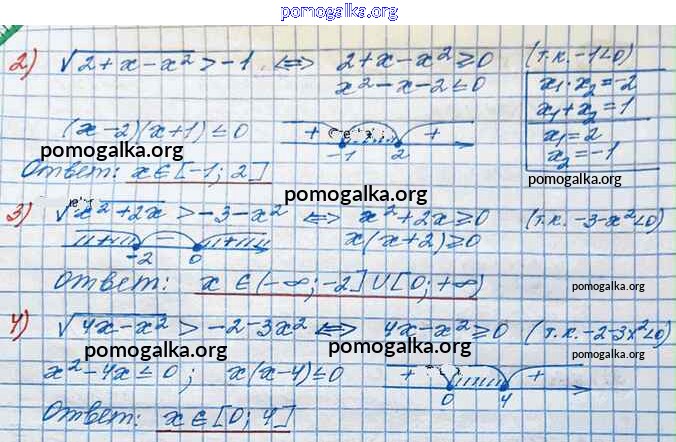 pomogalka.org
2) √(2+x−x²) > −1 ⟺ 2+x−x² ≥ 0 (т.к. −1<0)
x²−x−2 ≤ 0
x₁·x₂=−2
x₁+x₂=1
x₁=2
x₂=−1
(x−2)(x+1) ≤ 0
+ + −1 2
pomogalka.org
pomogalka.org
Ответ: x∈[−1; 2]
pomogalka.org
3) √(x²+2x) > −3−x² ⟺ x²+2x ≥ 0 (т.к. −3−x²<0)
+ − + −2 0
x(x+2) ≥ 0
Ответ: x∈(−∞; −2]∪[0; +∞)
pomogalka.org
4) √(4x−x²) > −2−3x² ⟺ 4x−x² ≥ 0 (т.к. −2−3x²<0)
pomogalka.org
pomogalka.org
pomogalka.org
x²−4x ≤ 0; x(x−4) ≤ 0
+ + 0 4
Ответ: x∈[0; 4]